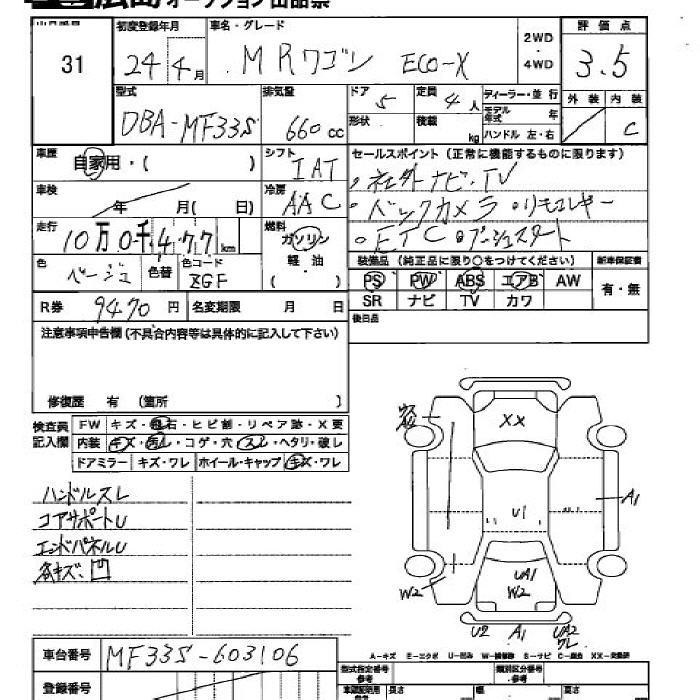 広島 オークション 出品票
31
初度登録年月
24年 4月
車名・グレード
MRワゴン ECO-X
2WD
・
4WD
評価点
3.5
外装 内装
C
型式
DBA-MF33S
排気量
660cc
ドア 5
定員 4人
ディーラー・並行
モデル年式 年
形状
積載 kg
ハンドル 左・右
車歴
自家用・( )
シフト
IAT
セールスポイント (正常に機能するものに限ります)
・社外ナビ・TV
・バックカメラ ・リモコンキー
・ETC ・プッシュスタート
車検
年 月( 日)
冷房
AAC
走行
10万0千477km
燃料
ガソリン
軽・油
( )
色
ベージュ
色替
色コード
ZGF
装備品 (純正品に限り○をつけてください)
新車保証書
PS PW ABS エアB AW
SR ナビ TV カワ
有・無
R券 9470円
名変期限 月 日
後日品
注意事項申告欄 (不具合内容等は具体的に記入して下さい)
修復歴 有 (箇所 )
検査員記入欄
FW キズ・飛石・ヒビ割・リペア跡・X要
内装 キズ・汚レ・コゲ・穴・スレ・ヘタリ・破レ
ドアミラー キズ・ワレ ホイール・キャップ キズ・ワレ
ハンドルスレ
コアサポートU
エンドパネルU
各キズ、凹
XX
U1
A1
W2
UA1
W2
U2 A1 UA2
ワレ
A-キズ E-エクボ U-凹み W-補修跡 S-サビ C-腐食 XX-交換済
車台番号 MF33S-603106
登録番号
型式指定番号
参考
類別区分番号
参考
長さ 幅 高さ